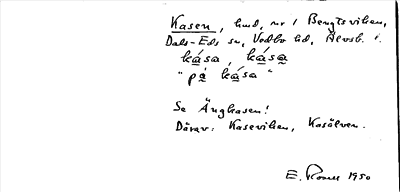 Kasen, hmd, nr 1 Bengtsviken,
Dals-Eds sn, Vedbo hd, Älvsb. l.
kása, kása
"pá kása"
Se Ängkasen!
Därav: Kaseviken, Kasälven.
E. 1950